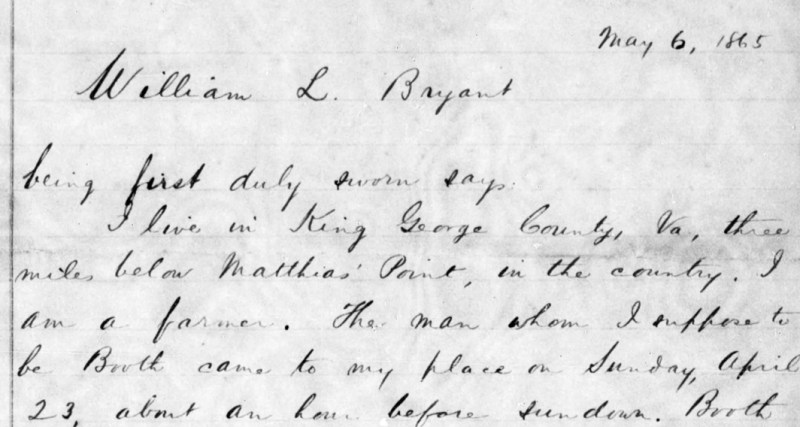 May 6, 1865
William L. Bryant
being first duly sworn says:
I live in King George County, Va, three
miles below Matthias' Point, in the country. I
am a farmer. The man whom I suppose to
be Booth came to my place on Sunday, April
23, about an hour before sundown. Booth